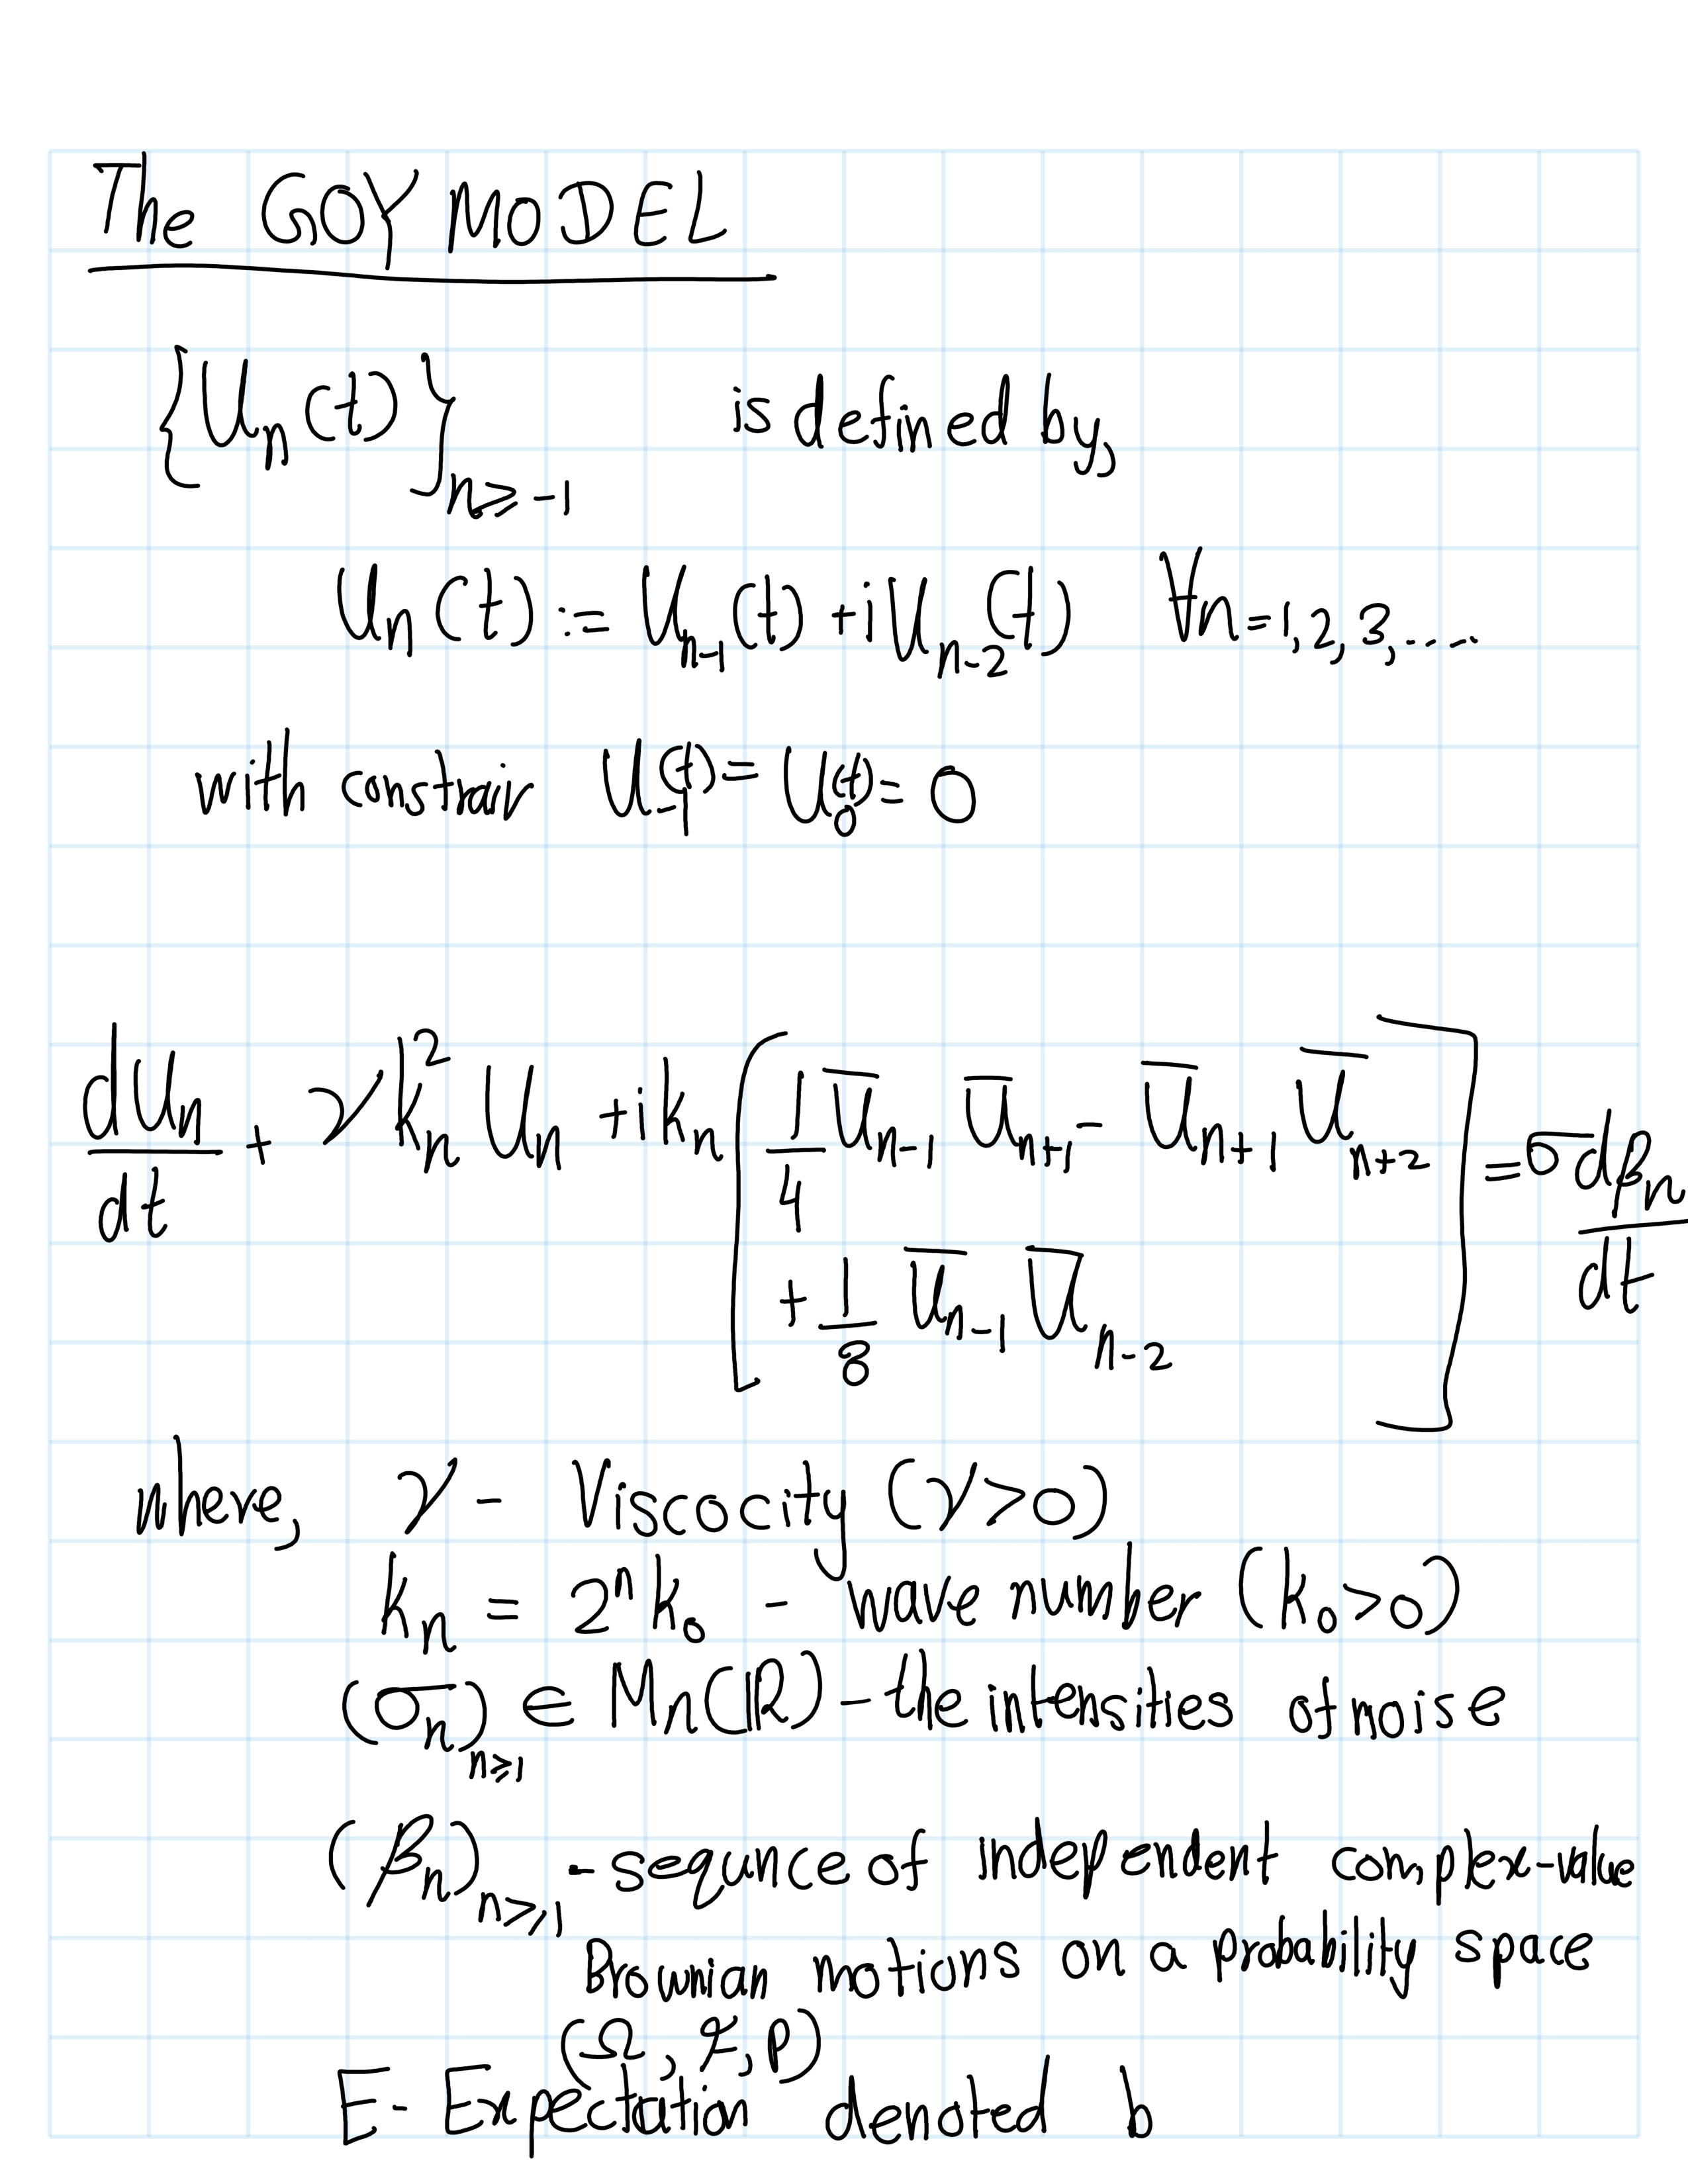 The GOY MODEL
{U_n(t)}_{n≥-1} is defined by,
U_n(t) := U_{n-1}(t) + iU_{n-2}(t) ∀n=1,2,3,....
with constrain U_{-1}(t) = U_0(t) = 0
dU_n/dt + νk_n^2 U_n + ik_n [1/4 Ū_{n-1} Ū_{n+1} - Ū_{n+1} Ū_{n+2}
+ 1/8 Ū_{n-1} Ū_{n-2}] = σ dβ_n/dt
where, ν - Viscocity (ν>0)
k_n = 2^n k_0 - wave number (k_0>0)
(σ_n)_{n≥1} ∈ M_n(ℝ) - the intensities of noise
(β_n)_{n≥1} - sequnce of independent complex-value
Brownian motions on a probability space
(Ω, F, P)
E - Expectation denoted b